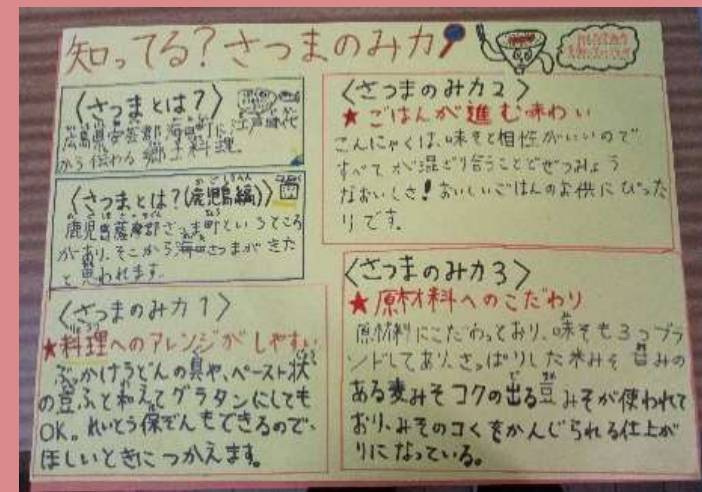 知ってる?さつまのみカ
〈さつまとは?〉
江戸時代
広島県安芸郡海田町に
から伝わる郷土料理。
〈さつまとは?(鹿児島編)〉
鹿児島薩摩郡さつま町というところ
があり、そこから海田さつまがきた
と思われます。
〈さつまのみカ1〉
★料理へのアレンジがしやすい
ぶかけうどんの具や、ペースト状
の豆ふと和えてグラタンにしても
OK。れいとう保ぞんもできるので、
ほしいときにつかえます。
〈さつまのみカ2〉
★ごはんが進む味わい
こんにゃくは、味そと相性がいいので
すべてが混ざり合うことでぜつみょう
なおいしさ!おいしいごはんのお供にぴった
りです。
〈さつまのみカ3〉
★原材料へのこだわり
原材料にこだわっており、味そも3つブラ
ンドしてあり、さっぱりした米みそ 旨みの
ある麦みそコクの出る豆みそが使われて
おり、みそのコくをかんじられる仕上が
りになっている。